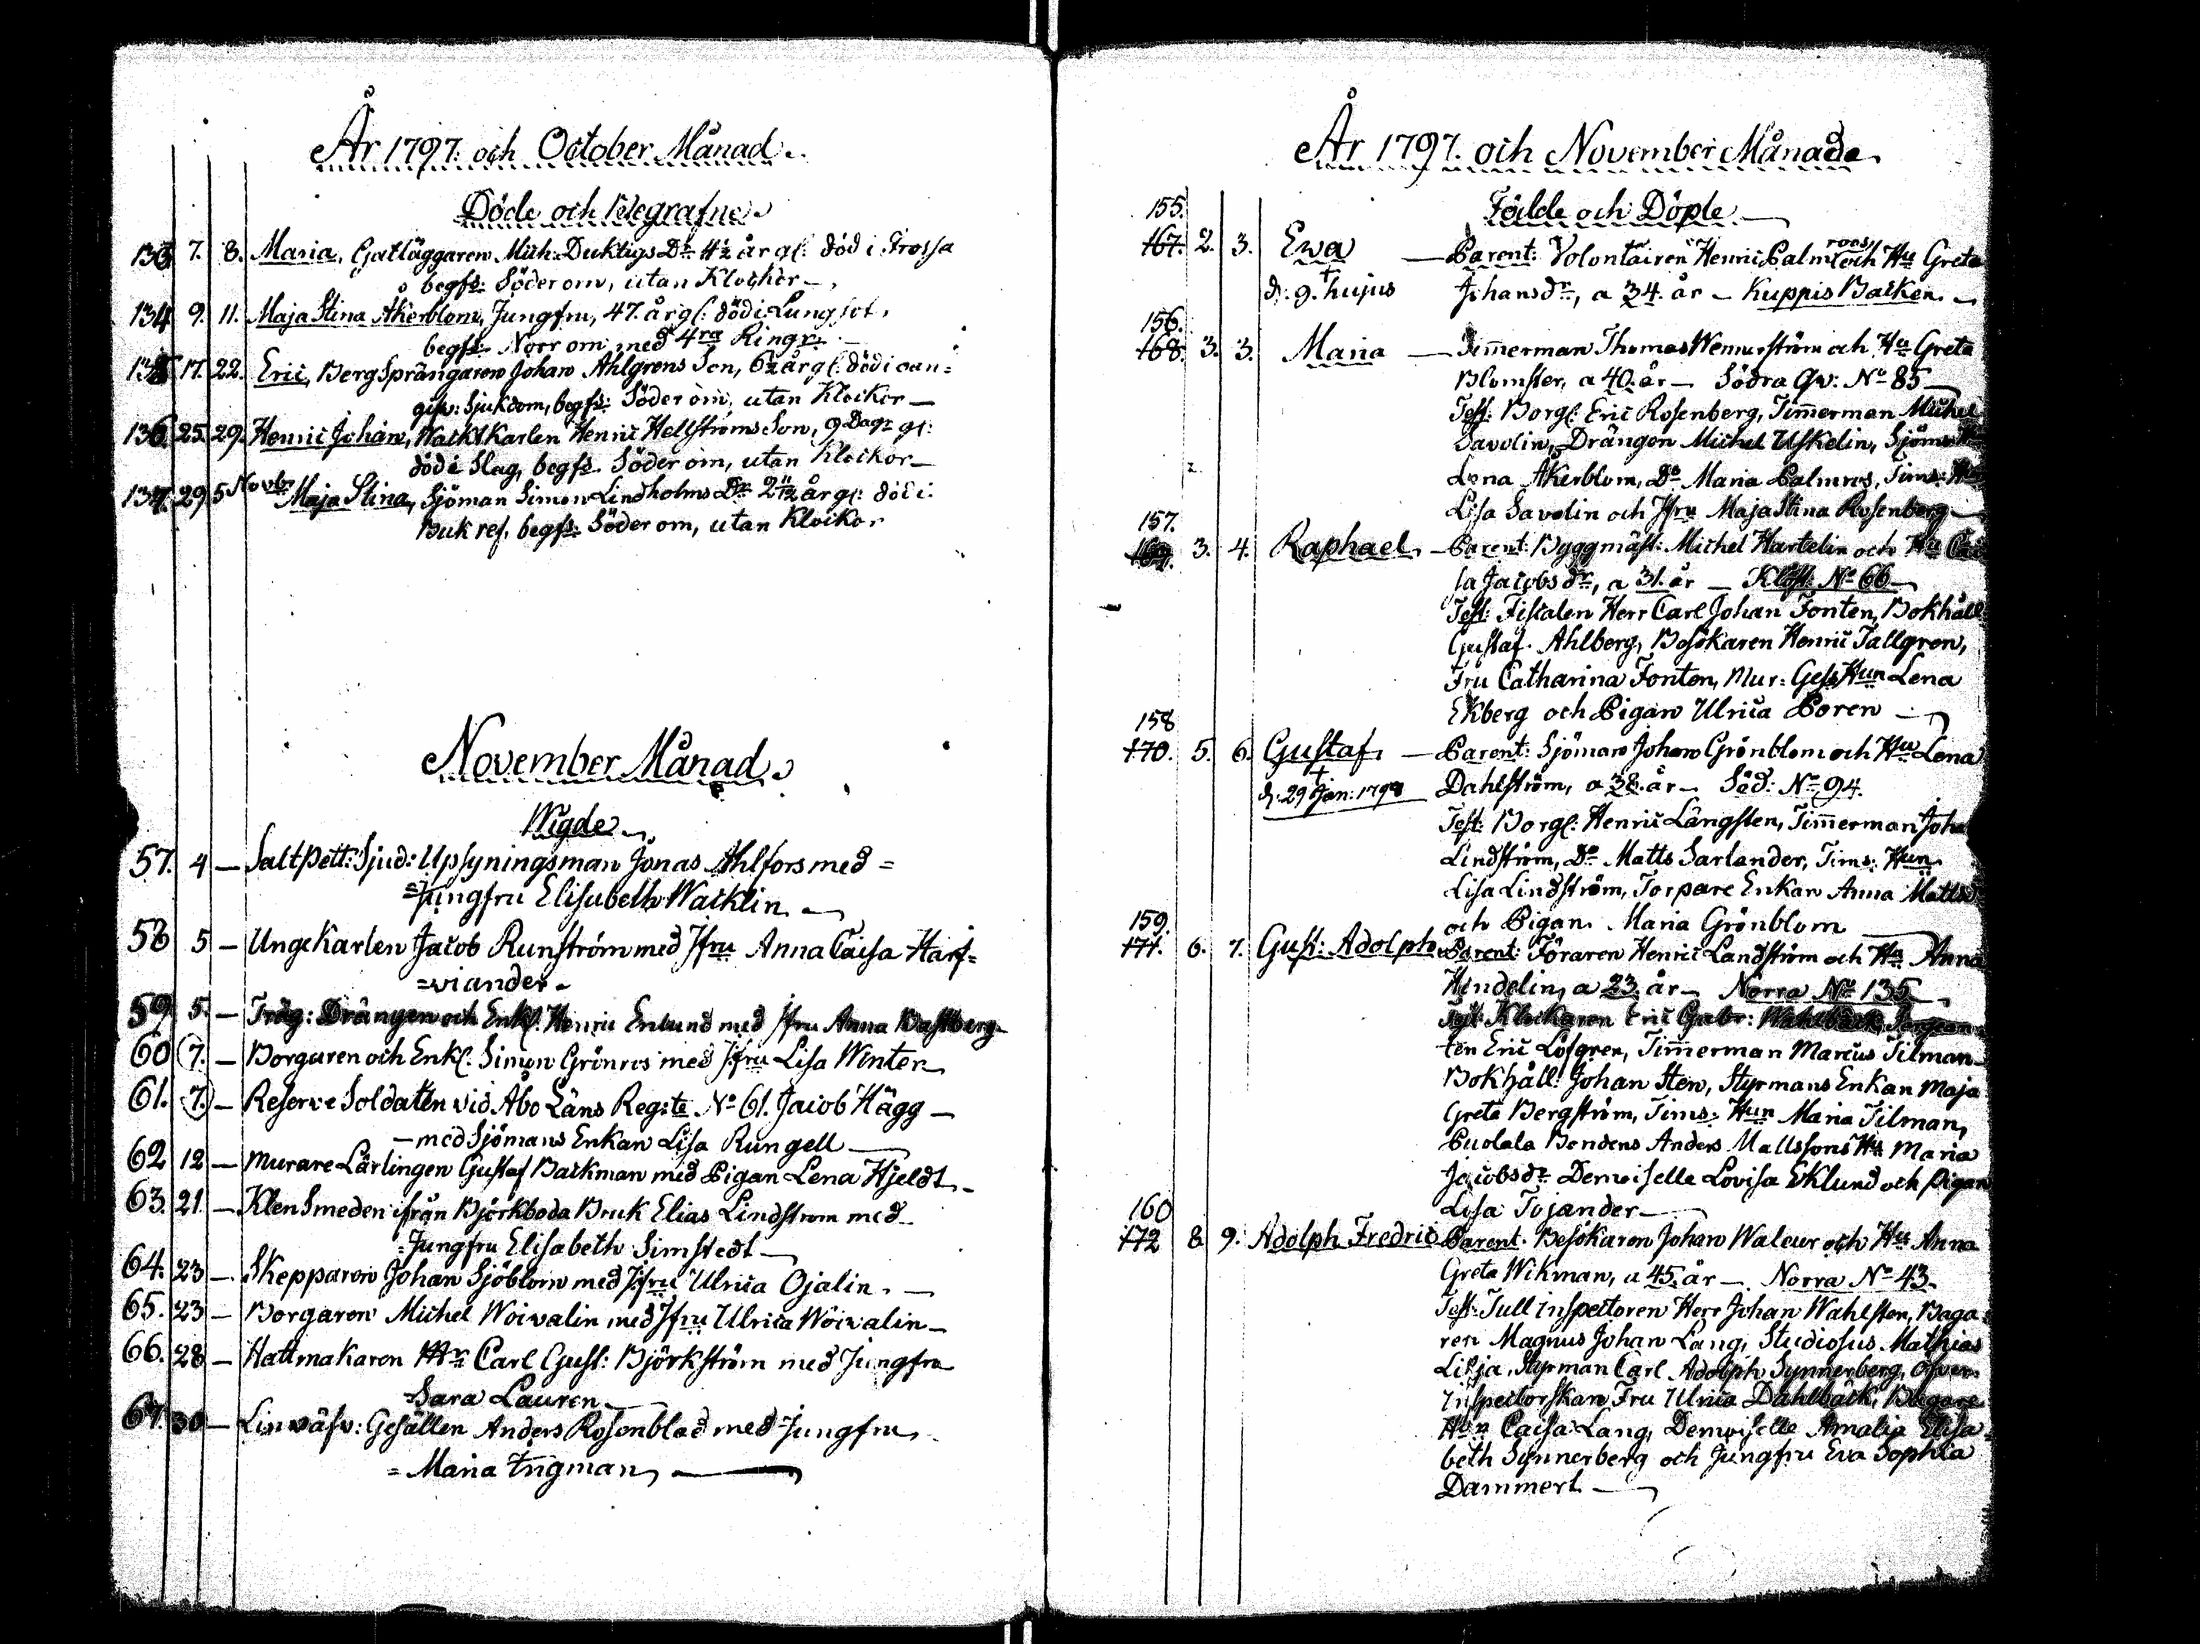 År 1797. och October Månad.
Döde och Begrafne.
133 7. 8. Maria, Gatläggaren Mich: Duktigs Dr 4½ år gl: död i Frossa
begfs: Söder om, utan Klockor
134 9. 11. Maja Stina Åkerblom, Jungfru, 47. år gl: död i Lungsot,
begfs. Norr om med 4ra Ringr:
135 17. 22. Eric, BergSprängaren Johan Ahlgrens Son, 6½ år gl: död i oan=
gifv: Sjukdom, begfs: Söder om, utan Klockor
136 25. 29. Henric Johan, WacktKarlen Henric Hellströms Son, 9 Dagr gl:
död i Slag, begfs. Söder om, utan Klockor
137. 29. 5 Novbr Maja Stina, Sjöman Simon Lindholms Dr 2 11/12 år gl: död i
Bukref, begfs: Söder om, utan Klockor
November Månad.
Wigde
57. 4 — Saltpett: Sjud: Upsyningsman Jonas Ahlfors med =
=Jungfru Elisabeth Wacklin.
58 5 — Ungekarlen Jacob Runström med Jfru Anna Caisa Harf=
=viander.
59. 5. — Träg: Drängen och Enkl. Henric Enlund med Jfru Anna Bastberg
60 7. — Borgaren och Enkl. Simon Grönros med Jfru Lisa Winter
61. 7. — Reserve Soldaten vid Åbo Läns Reg:te No 61. Jacob Hägg —
— med Sjömans Enkan Lisa Rungell
62 12 — Murare Lärlingen Gustaf Backman med Pigan Lena Hjeldt
63. 21 — KlenSmeden ifrån Björkboda Bruk Elias Lindstrom med
=Jungfru Elisabeth Simstedt
64. 23 — Skepparen Johan Sjöblom med Jfru Ulrica Ojalin.
65. 23 — Borgaren Michel Woivalin med Jfru Ulrica Woivalin
66. 28 — Hattmakaren Mr Carl Gust: Björkström med Jungfru
Sara Lauren
67. 30 — Linväfv: Gesällen Anders Rosenblad med Jungfru
=Maria Frigman
År 1797. och November Månad.
Födde och Döpte
155.
167. 2. 3. Ewa — Parent: Volontairen Henric Palmroos och Hu Greta
d: 9. † hujus Johansdr, a 34. år — Kuppis Backen.
156.
168. 3. 3. Maria — Timmerman Thomas Wennerström och Hu Greta
Blomster, a 40. år — Södra Qv: No 85
Test: Borgl: Eric Rosenberg, Timmerman Michel
Savolin, Drängen Michel Uskelin, Sjömans
Lena Åkerblom, Do Maria Palmros, Tims:
Lisa Savolin och Jfru Maja Stina Rosenberg
157.
169. 3. 4. Raphael. — Parent: Byggmäst: Michel Hartelin och Hu Cai
sa Jacobsdr, a 31. år — Klöst: No 66
Test: Fiscalen Herr Carl Johan Fonten, Bokhåll:
Gustaf Ahlberg, Besökaren Henric Tallgren,
Fru Catharina Fonten, Mur: Gess Hun Lena
Ekberg och Pigan Ulrica Boren
158
170. 5. 6. Gustaf. — Parent: Sjöman Johan Grönblom och Hu Lena
† d: 29 Jan: 1798 Dahlström, a 38. år — Söd: No 94.
Test: Borgl: Henric Långsten, Timmerman Joha
Lindström, Do Matts Sarlander, Tims: Hun
Lisa Lindström, Torpare Enkan Anna Mattsd
och Pigan Maria Grönblom
159.
171. 6. 7. Gust: Adolph Parent: Föraren Henric Landström och Hu Anna
Hindelin, a 23. år — Norra No 135
Test: Klockaren Eric Gabr: Wahlbäck, Sergean
ten Eric Löfgren, Timmerman Marcus Tilman
Bokhåll: Johan Sten, Styrmans Enkan Maja
Greta Bergström, Tims: Hun Maria Tilman,
Puolala Bondens Anders Mattssons Hu Maria
Jacobsdr Demoiselle Lovisa Eklund och Pigan
Lisa Tojander
160
172 8 9. Adolph Fredric Parent. Besökaren Johan Waleur och Hu Anna
Greta Wikman, a 45. år — Norra No 43.
Test: Tull inspectoren Herr Johan Wahlsten, Baga
ren Magnus Johan Lang, Studiosus Mathias
Lilja, Styrman Carl Adolph Synnerberg, Öfver
Inspectorskan Fru Ulrica Dahlbäck, Bagare
Hun Caisa Lang, Demoiselle Amalia Elisa
beth Synnerberg och Jungfru Eva Sophia
Dammert